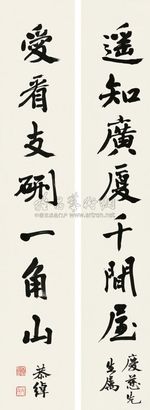 遥知廣廈千間屋
慶慈先
生屬
愛看支硎一角山
恭綽